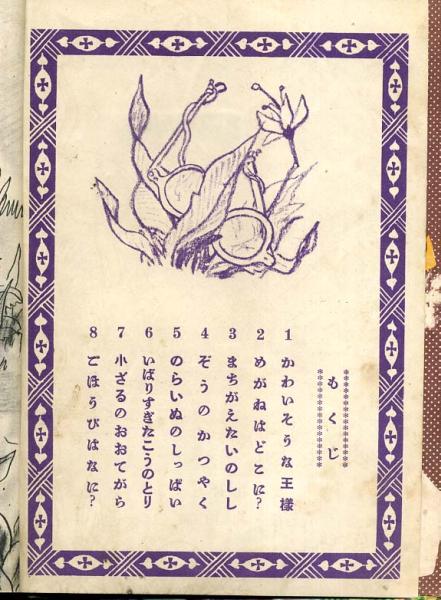 もくじ
1 かわいそうな王様
2 めがねはどこに?
3 まちがえたいのしし
4 ぞうのかつやく
5 のらいぬのしっぱい
6 いばりすぎたこうのとり
7 小ざるのおおてがら
8 ごほうびはなに?